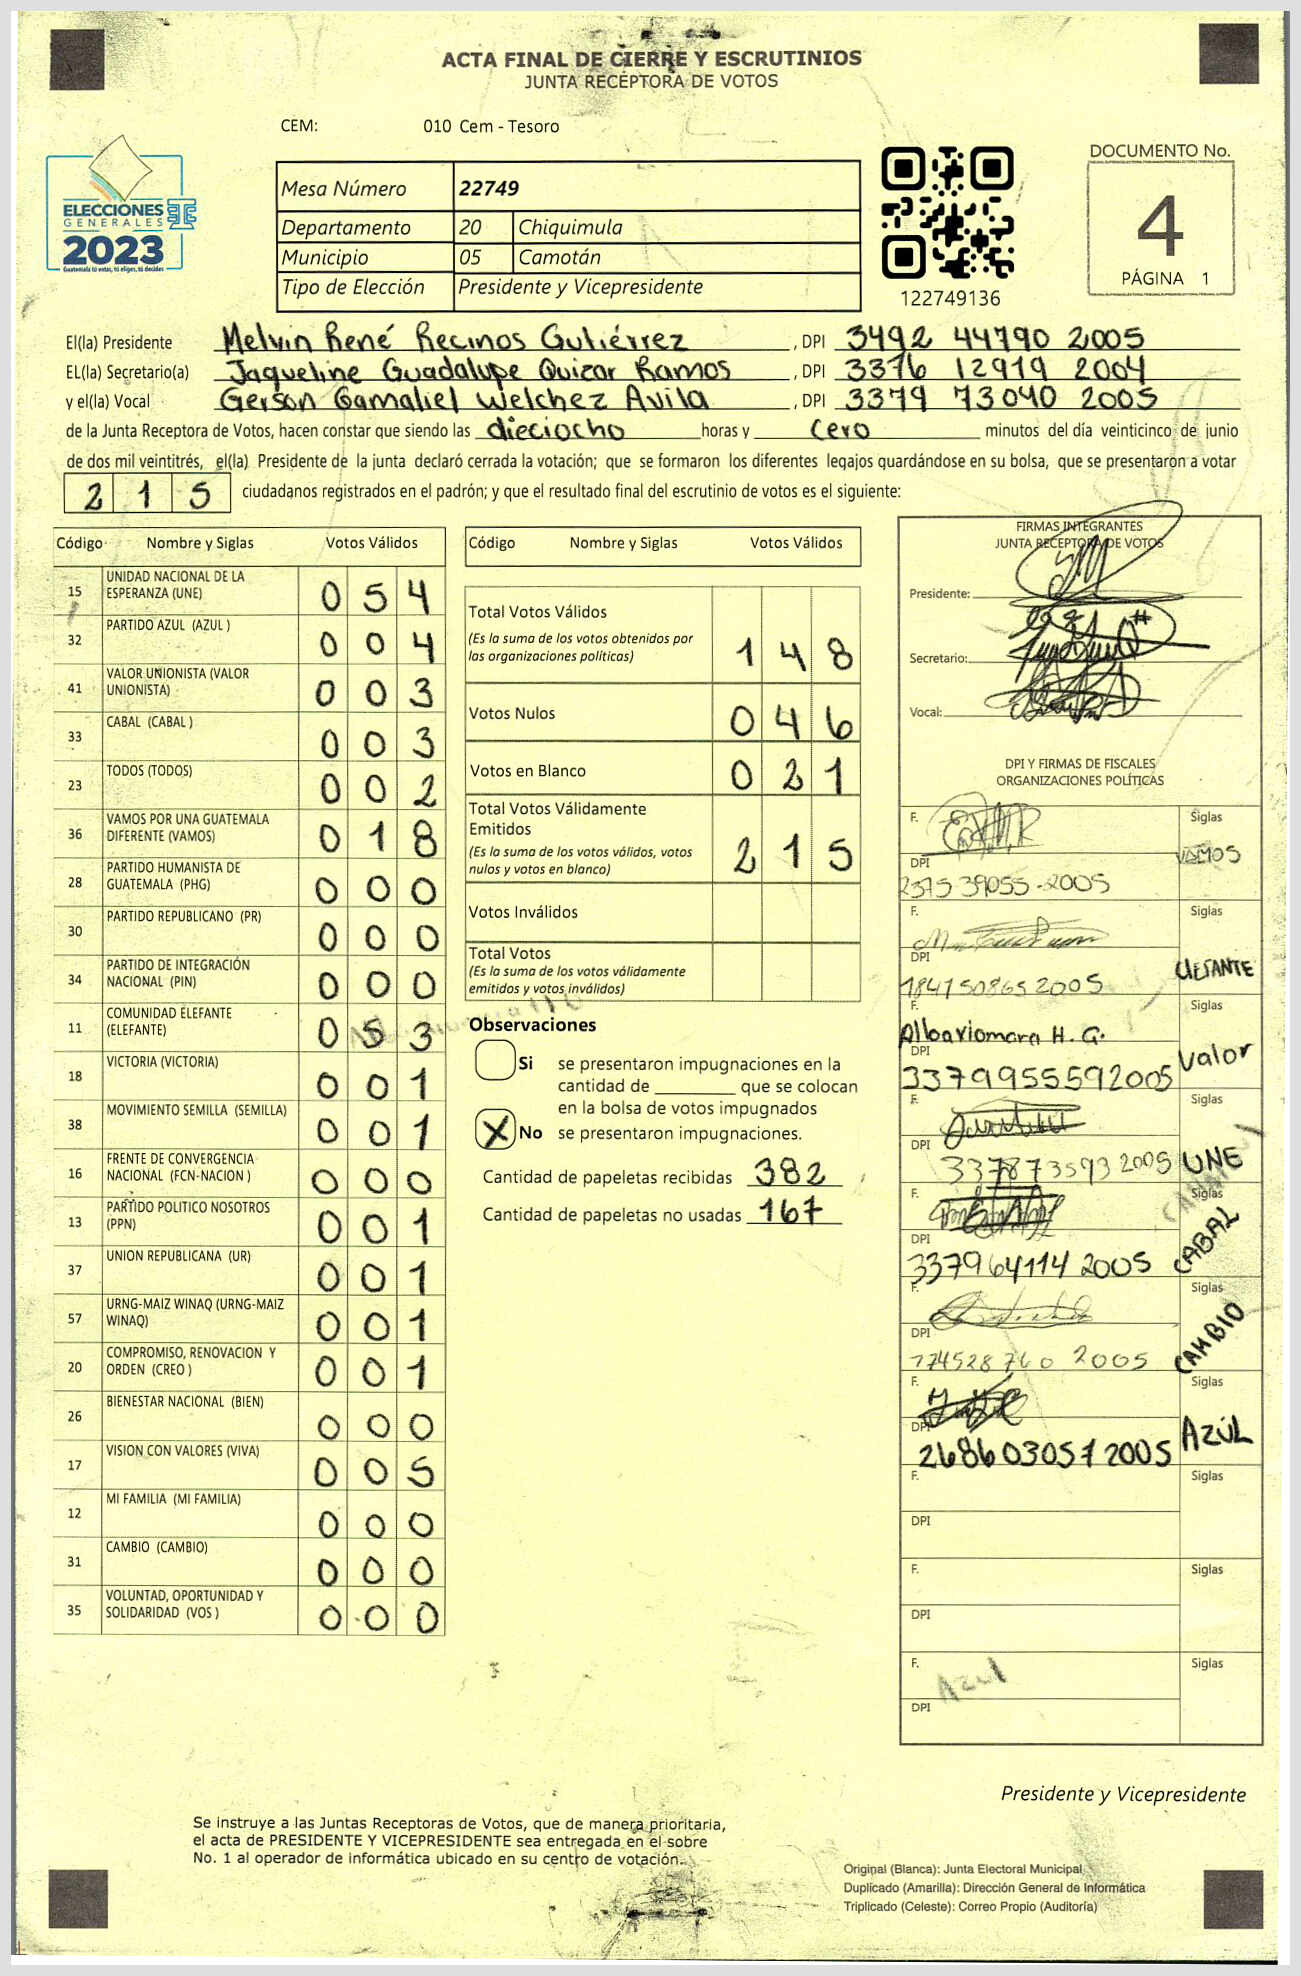 ACTA FINAL DE CIERRE Y ESCRUTINIOS
JUNTA RECEPTORA DE VOTOS
CEM: 010 Cem - Tesoro
ELECCIONES
GENERALES
2023
Guatemala tú votas, tú eliges, tú decides
Mesa Número 22749
Departamento 20 Chiquimula
Municipio 05 Camotán
Tipo de Elección Presidente y Vicepresidente
122749136
DOCUMENTO No.
4
PÁGINA 1
El(la) Presidente Melvin René Recinos Gutiérrez , DPI 3492 44790 2005
EL(la) Secretario(a) Jaqueline Guadalupe Quizar Ramos , DPI 3376 12919 2004
y el(la) Vocal Gerson Gamaliel Welchez Avila , DPI 3379 73040 2005
de la Junta Receptora de Votos, hacen constar que siendo las dieciocho horas y cero minutos del día veinticinco de junio
de dos mil veintitrés, el(la) Presidente de la junta declaró cerrada la votación; que se formaron los diferentes legajos guardándose en su bolsa, que se presentaron a votar
215 ciudadanos registrados en el padrón; y que el resultado final del escrutinio de votos es el siguiente:
Código Nombre y Siglas Votos Válidos
15 UNIDAD NACIONAL DE LA ESPERANZA (UNE) 054
32 PARTIDO AZUL (AZUL ) 004
41 VALOR UNIONISTA (VALOR UNIONISTA) 003
33 CABAL (CABAL ) 003
23 TODOS (TODOS) 002
36 VAMOS POR UNA GUATEMALA DIFERENTE (VAMOS) 018
28 PARTIDO HUMANISTA DE GUATEMALA (PHG) 000
30 PARTIDO REPUBLICANO (PR) 000
34 PARTIDO DE INTEGRACIÓN NACIONAL (PIN) 000
11 COMUNIDAD ELEFANTE (ELEFANTE) 053
18 VICTORIA (VICTORIA) 001
38 MOVIMIENTO SEMILLA (SEMILLA) 001
16 FRENTE DE CONVERGENCIA NACIONAL (FCN-NACION ) 000
13 PARTIDO POLITICO NOSOTROS (PPN) 001
37 UNION REPUBLICANA (UR) 001
57 URNG-MAIZ WINAQ (URNG-MAIZ WINAQ) 001
20 COMPROMISO, RENOVACION Y ORDEN (CREO ) 001
26 BIENESTAR NACIONAL (BIEN) 000
17 VISION CON VALORES (VIVA) 005
12 MI FAMILIA (MI FAMILIA) 000
31 CAMBIO (CAMBIO) 000
35 VOLUNTAD, OPORTUNIDAD Y SOLIDARIDAD (VOS ) 000
Código Nombre y Siglas Votos Válidos
Total Votos Válidos 148
(Es la suma de los votos obtenidos por
las organizaciones políticas)
Votos Nulos 046
Votos en Blanco 021
Total Votos Válidamente
Emitidos 215
(Es la suma de los votos válidos, votos
nulos y votos en blanco)
Votos Inválidos
Total Votos
(Es la suma de los votos válidamente
emitidos y votos inválidos)
Observaciones
Si se presentaron impugnaciones en la
cantidad de que se colocan
en la bolsa de votos impugnados
X No se presentaron impugnaciones.
Cantidad de papeletas recibidas 382
Cantidad de papeletas no usadas 167
FIRMAS INTEGRANTES
JUNTA RECEPTORA DE VOTOS
Presidente:
Secretario:
Vocal:
DPI Y FIRMAS DE FISCALES
ORGANIZACIONES POLÍTICAS
F. Siglas
VAMOS
DPI
2375 39055-2005
F. Siglas
DPI
184150865 2005
F. Siglas
Valor
DPI
3379955592005
F. Siglas
DPI
337873593 2005 UNE
F. Siglas
CABAL
DPI
337964114 2005
F. Siglas
CAMBIO
DPI
774528760 2005
F. Siglas
AZÚL
DPI
268603051 2005
F. Siglas
DPI
F. Siglas
DPI
F. Siglas
Azul
DPI
Presidente y Vicepresidente
Se instruye a las Juntas Receptoras de Votos, que de manera prioritaria,
el acta de PRESIDENTE Y VICEPRESIDENTE sea entregada en el sobre
No. 1 al operador de informática ubicado en su centro de votación.
Original (Blanca): Junta Electoral Municipal
Duplicado (Amarilla): Dirección General de Informática
Triplicado (Celeste): Correo Propio (Auditoría)